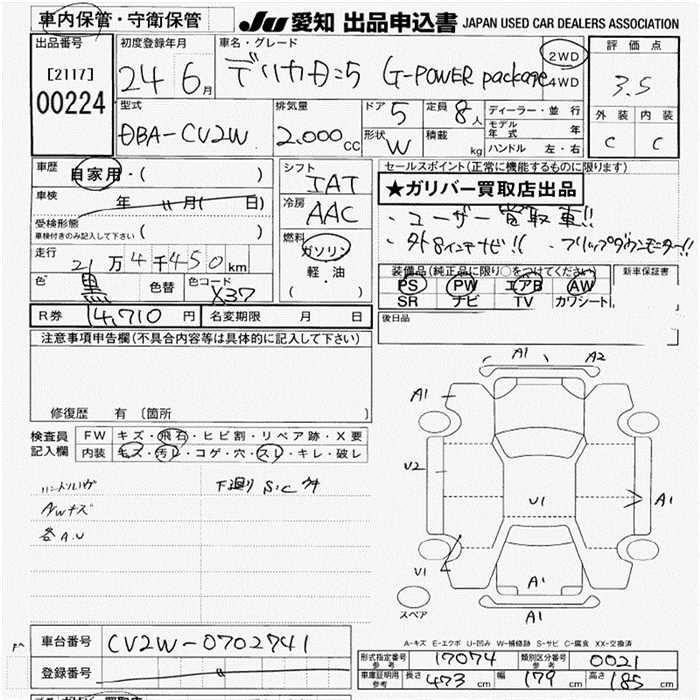 車内保管・守衛保管
JU 愛知 出品申込書 JAPAN USED CAR DEALERS ASSOCIATION
出品番号 [2117] 00224
初度登録年月 24 6月
車名・グレード デリカD:5 G-POWER package
2WD
4WD
評価点 3.5
外装 内装
C C
型式 DBA-CV2W
排気量 2.000cc
ドア 5
形状 W
定員 8人
積載 kg
ディーラー・並行
モデル年式 年
ハンドル 左・右
車歴 自家用・( )
車検 年 〃 月( 日)
受検形態
車検付きのみ記入して下さい ( )
走行 21万4千450km
色 黒 色替 色コード X37
シフト IAT
冷房 AAC
燃料 ガソリン
軽・油
( )
セールスポイント(正常に機能するものに限ります)
★ガリバー買取店出品
・ユーザー買取車!!
・外8インチナビ!! ・フリップダウンモニター!!
装備品(純正品に限り○をつけてください)
PS PW エアB AW
SR ナビ TV カワシート
新車保証書
後日品
R券 14,710円 名変期限 月 日
注意事項申告欄(不具合内容等は具体的に記入して下さい)
修復歴 有 〔箇所 〕
検査員記入欄
FW キズ・飛石・ヒビ割・リペア跡・X要
内装 キズ・汚レ・コゲ・穴・スレ・キレ・破レ
下廻り S.C
AWキズ
各A.U
A1 A2
A1
U2
U1
A1
U1
A1
スペア
A1
A-キズ E-エクボ U-凹み W-補修跡 S-サビ C-腐食 XX-交換済
車台番号 CV2W-0702741
登録番号 〃
形式指定番号 参考 17074 類別区分番号 参考 0021
車庫証明用 参考 長さ 473cm 幅 179cm 高さ 185cm